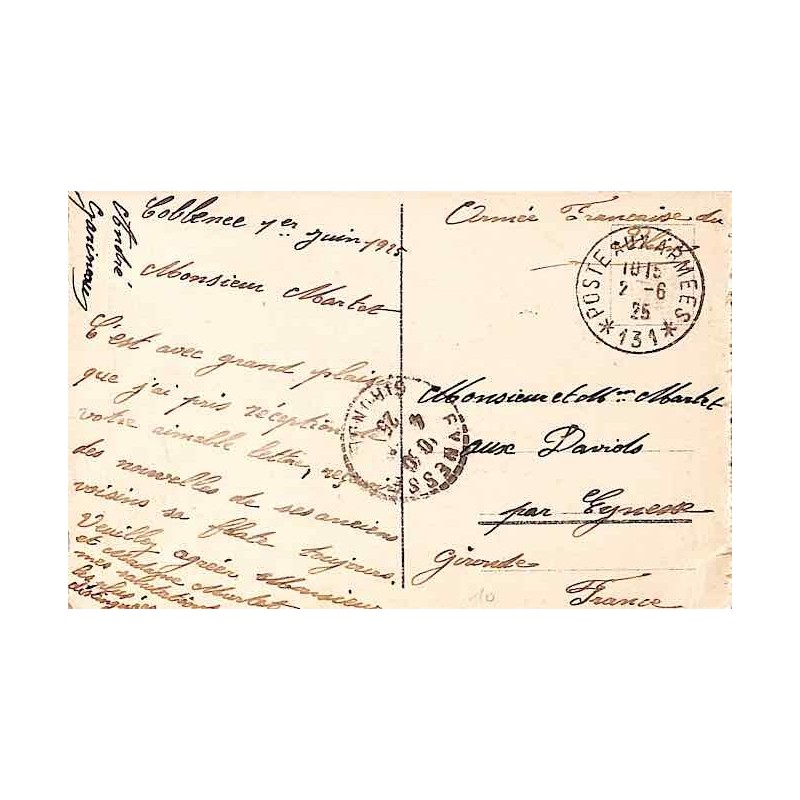 Coblence 1er Juin 1925
Monsieur Martet
C'est avec grand plaisir
que j'ai pris réception de
votre aimable lettre,
des nouvelles de ses anciens
voisins sa flate toujours.
Veuillez agréer Monsieur
et Madame Martet
mes salutations
les plus
distinguées
André
Garineau
Armée Française du
Rhin
POSTE AUX ARMEES
1015
2 -6
25
* 131 *
EYNESSE
GIRONDE
10 30
4
25
Monsieur et Mme Martet
aux Davids
par Eynesse
Gironde
France
10